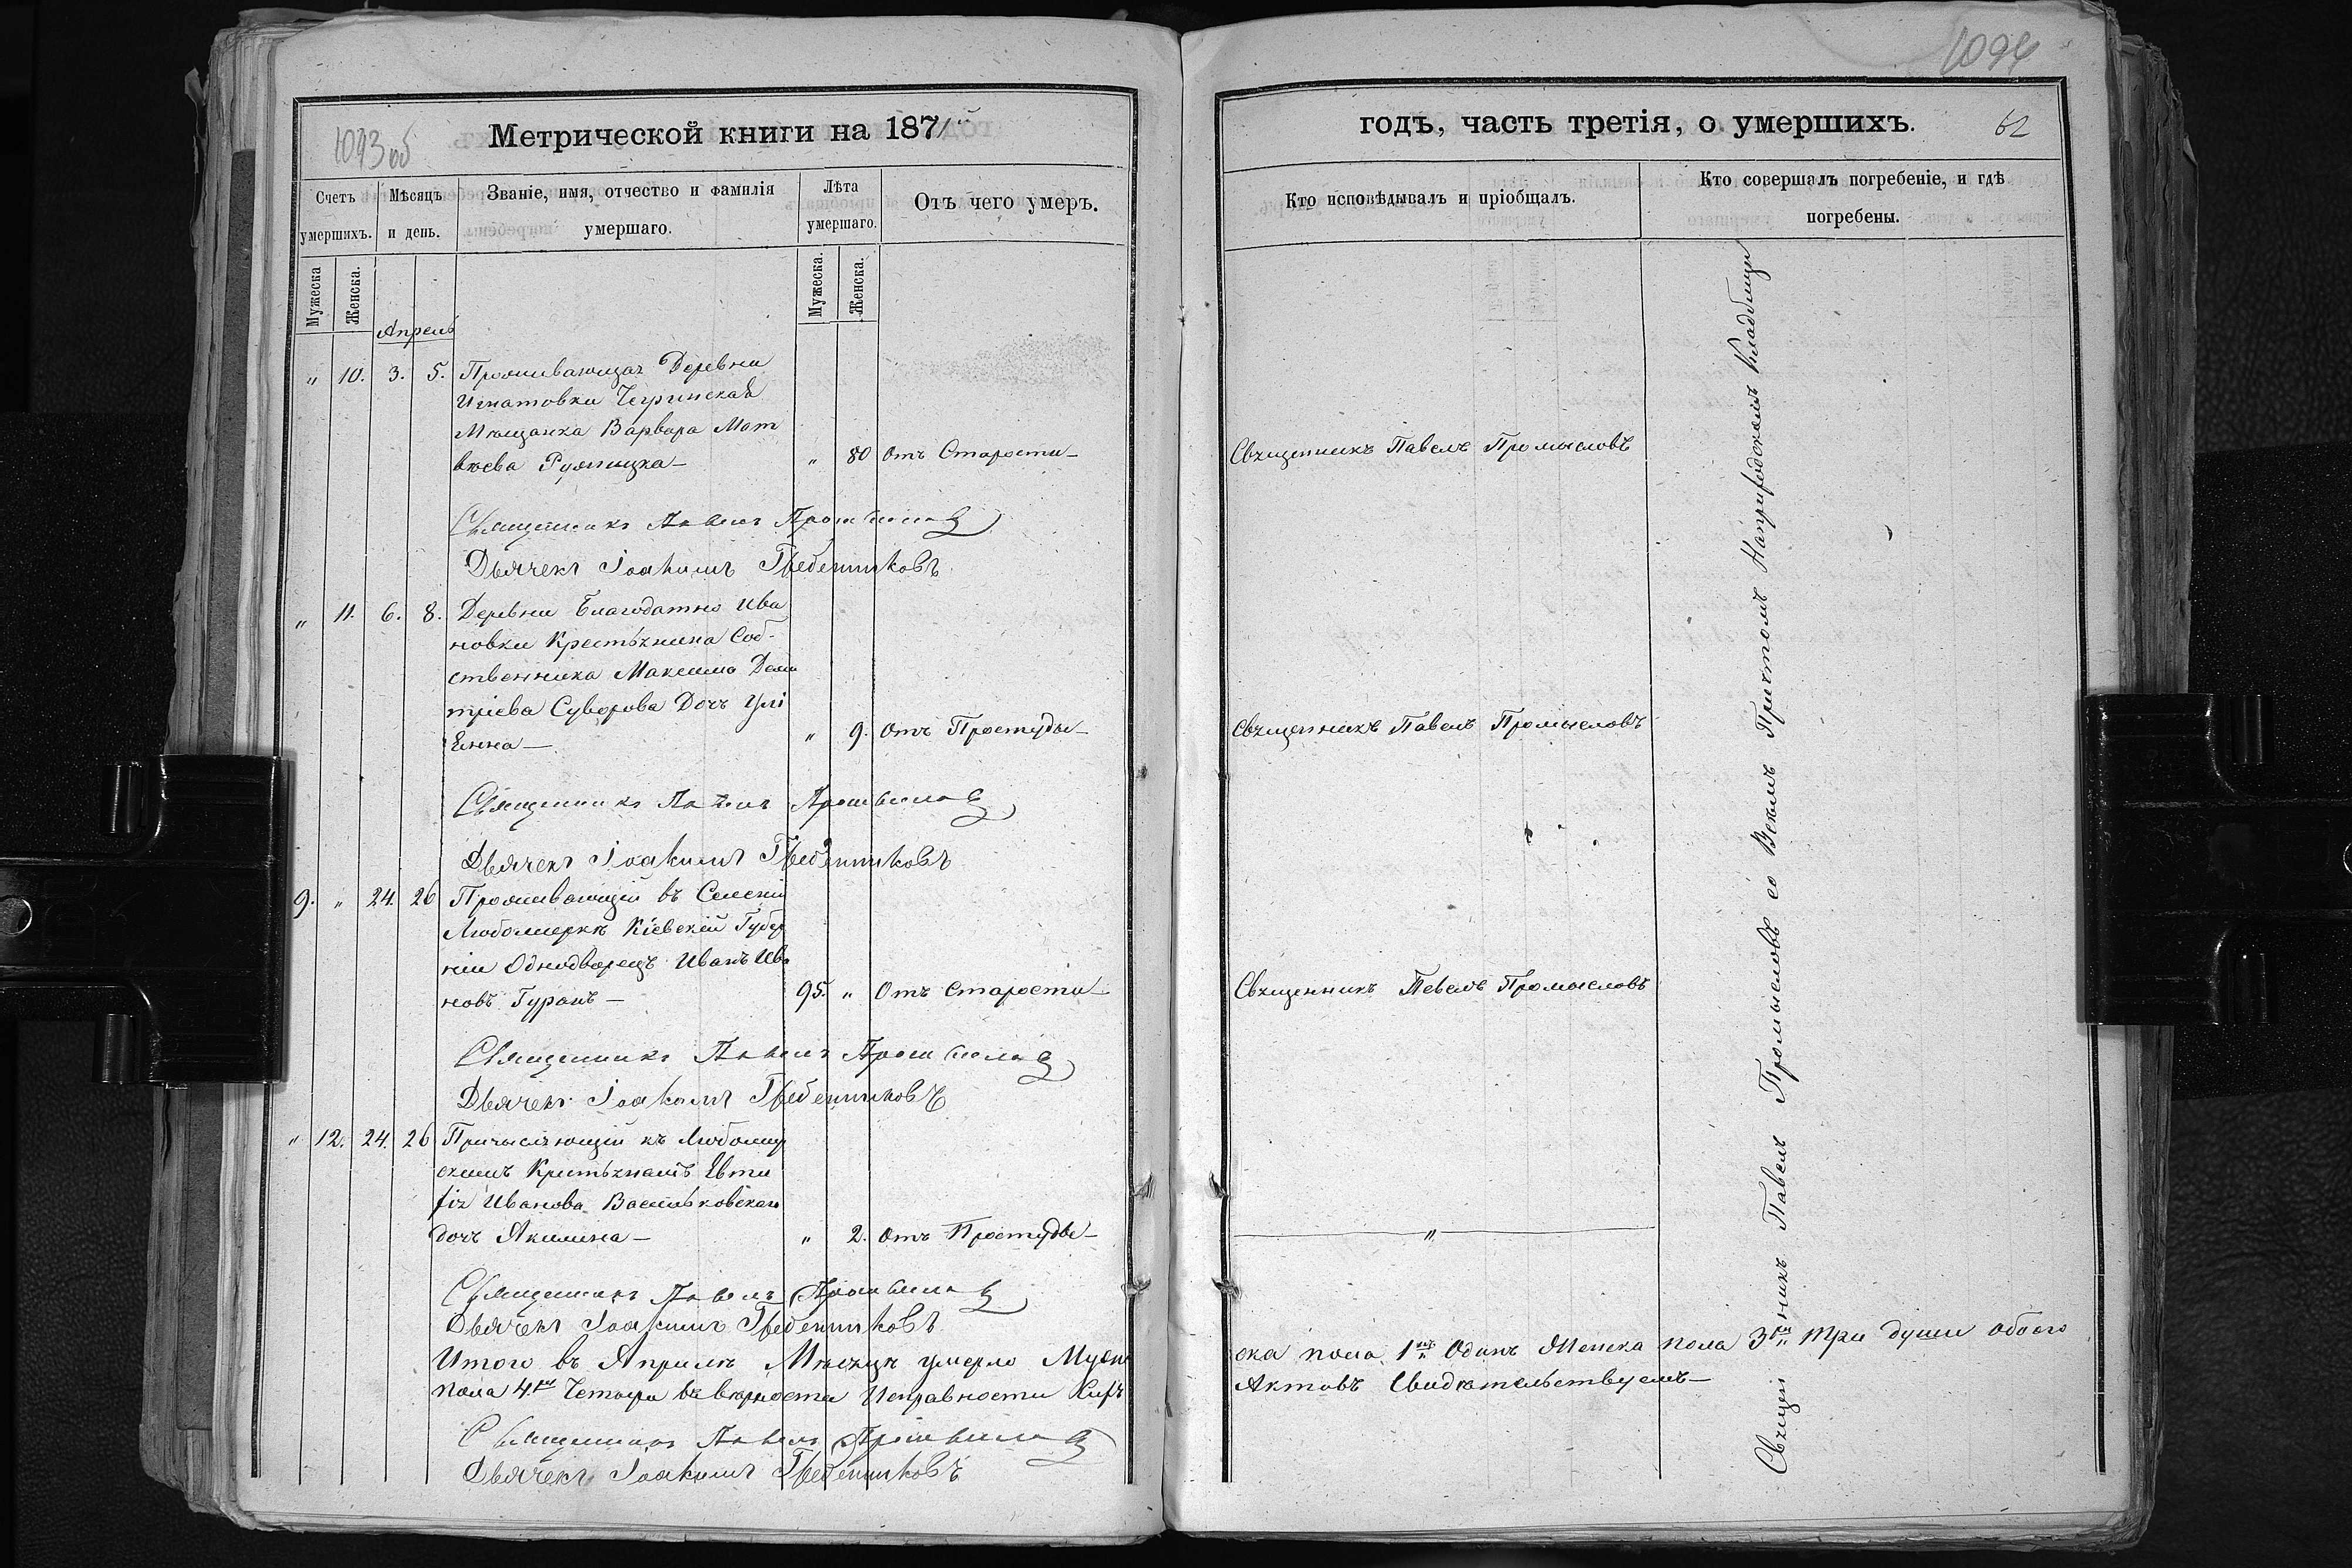 1093 об
Метрической книги на 1871
Счетъ умершихъ.
Мѣсяцъ и день.
Званіе, имя, отчество и фамилія умершаго.
Лѣта умершаго.
Отъ чего умеръ.
Мужеска
Женска.
Мужеска.
Женска.
Апрель
„ 10. 3. 5. Проживающая Деревни
Игнатовки
Мѣщанка Варвара Мат
вѣева „ 80 отъ Старости
Священникъ Павелъ Промысловъ
Дьячекъ Іоакимъ Гребенниковъ
„ 11. 6. 8. Деревни Благодатно Ива
новки Крестьянина Соб-
ственника Максима Дми
тріева Суворова Дочь Улі
Янна „ 9. отъ Простуды
Священникъ Павелъ Промысловъ
Дьячекъ Іоакимъ Гребенниковъ
9. „ 24. 26 Проживающій въ Селеніи
Любомиркѣ Кіевскій Губер
ніи Однодворецъ Иванъ Ива
новъ Гуранъ 95. „ Отъ Старости
Священникъ Павелъ Промысловъ
Дьячекъ Іоакимъ Гребенниковъ
„ 12. 24. 26 къ Любомир
скимъ Крестьянамъ Евти
fія Иванова Васильковскаго
дочь Акилина „ 2. отъ Простуды
Священникъ Павелъ Промысловъ
Дьячекъ Іоакимъ Гребенниковъ
Итого въ Априлѣ Мѣсяцѣ умерло Муже
пола 4. Четыри въ вѣрности Исправности
Священникъ Павелъ Промысловъ
Дьячекъ Іоакимъ Гребенниковъ
1094
годъ, часть третія, о умершихъ.
62
Кто исповѣдывалъ и пріобщалъ.
Кто совершалъ погребеніе, и гдѣ погребены.
Священникъ Павелъ Промысловъ
Священникъ Павелъ Промысловъ
Священникъ Павелъ Промысловъ
„
Священникъ Павелъ Промысловъ со Всѣмъ Притчомъ Наприfодскомъ Кладбищи
ска пола 1 Одинъ Женска пола 3 три души обоего
Актовъ Свидѣтельствуемъ